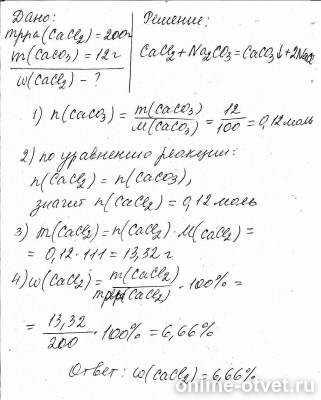 Дано:
mрра(CaCl₂) = 200г
m(CaCO₃) = 12г
w(CaCl₂) - ?
Решение:
CaCl₂ + Na₂CO₃ = CaCO₃↓ + 2NaCl
1) n(CaCO₃) = m(CaCO₃)/M(CaCO₃) = 12/100 = 0,12 моль
2) по уравнению реакции:
n(CaCl₂) = n(CaCO₃),
значит n(CaCl₂) = 0,12 моль
3) m(CaCl₂) = n(CaCl₂) · M(CaCl₂) =
= 0,12 · 111 = 13,32 г
4) w(CaCl₂) = m(CaCl₂)/mрра(CaCl₂) · 100% =
= 13,32/200 · 100% = 6,66%
Ответ: w(CaCl₂) = 6,66%
online-otvet.ru